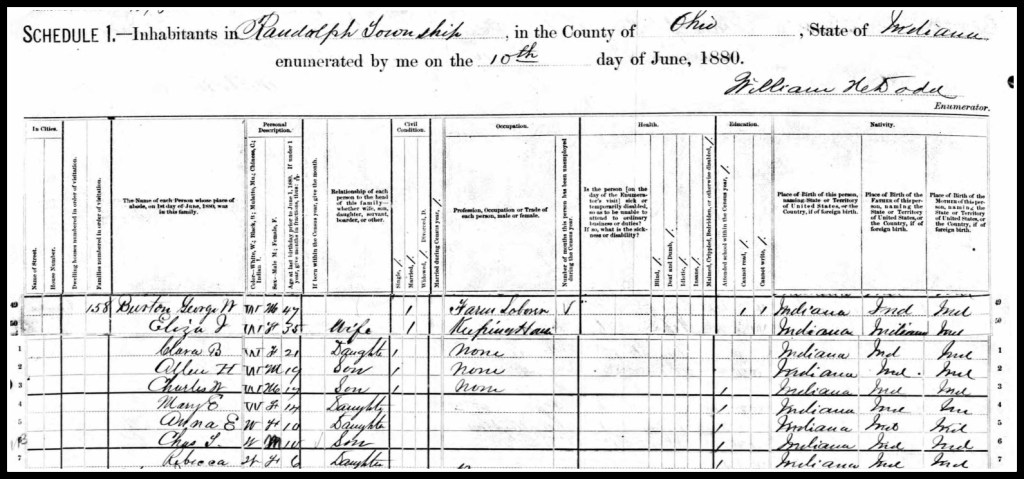 SCHEDULE 1.—Inhabitants in Randolph Township, in the County of Ohio, State of Indiana
enumerated by me on the 10th day of June, 1880.
William H Dodd
Enumerator.
In Cities.
Name of Street.
House Number.
Dwelling houses numbered in order of visitation.
Families numbered in order of visitation.
The Name of each Person whose place of abode, on 1st day of June, 1880, was in this family.
Personal Description.
Color—White, W; Black, B; Mulatto, Mu; Chinese, C; Indian, I.
Sex—Male M; Female, F.
Age at last birthday prior to June 1, 1880. If under 1 year, give months in fractions, thus:
If born within the Census year, give the month.
Relationship of each person to the head of this family—whether wife, son, daughter, servant, boarder, or other.
Civil Condition.
Single, /
Married, /
Widowed, / Divorced, D.
Married during Census year, /
Occupation.
Profession, Occupation or Trade of each person, male or female.
Number of months this person has been unemployed during the Census year.
Health.
Is the person [on the day of the Enumerator's visit] sick or temporarily disabled, so as to be unable to attend to ordinary business or duties? If so, what is the sickness or disability?
Blind, /
Deaf and Dumb, /
Idiotic, /
Insane, /
Maimed, Crippled, Bedridden, or otherwise disabled, /
Education.
Attended school within the Census year, /
Cannot read, /
Cannot write, /
Nativity.
Place of Birth of this person, naming State or Territory of United States, or the Country, if of foreign birth.
Place of Birth of the FATHER of this person, naming the State or Territory of United States, or the Country, if of foreign birth.
Place of Birth of the MOTHER of this person, naming the State or Territory of United States, or the Country, if of foreign birth.
49 158 Burton George W W M 47 / Farm Laborer / / Indiana Ind Ind 49
50 Eliza J W F 35 Wife / Keeping House Indiana Indiana Ind 50
1 Clara B W F 21 Daughter / None Indiana Ind Ind 1
2 Allen H W M 19 Son / None Indiana Ind. Ind 2
3 Charles W W M 17 Son / None / Indiana Ind Ind 3
4 Mary E W F 14 Daughter / Indiana Ind Ind 4
5 Anna E W F 10 Daughter / Indiana Ind Ind 5
6 Chas W M 10 Son / Indiana Ind Ind 6
7 Rebecca W F 6 Daughter / Indiana Ind Ind 7